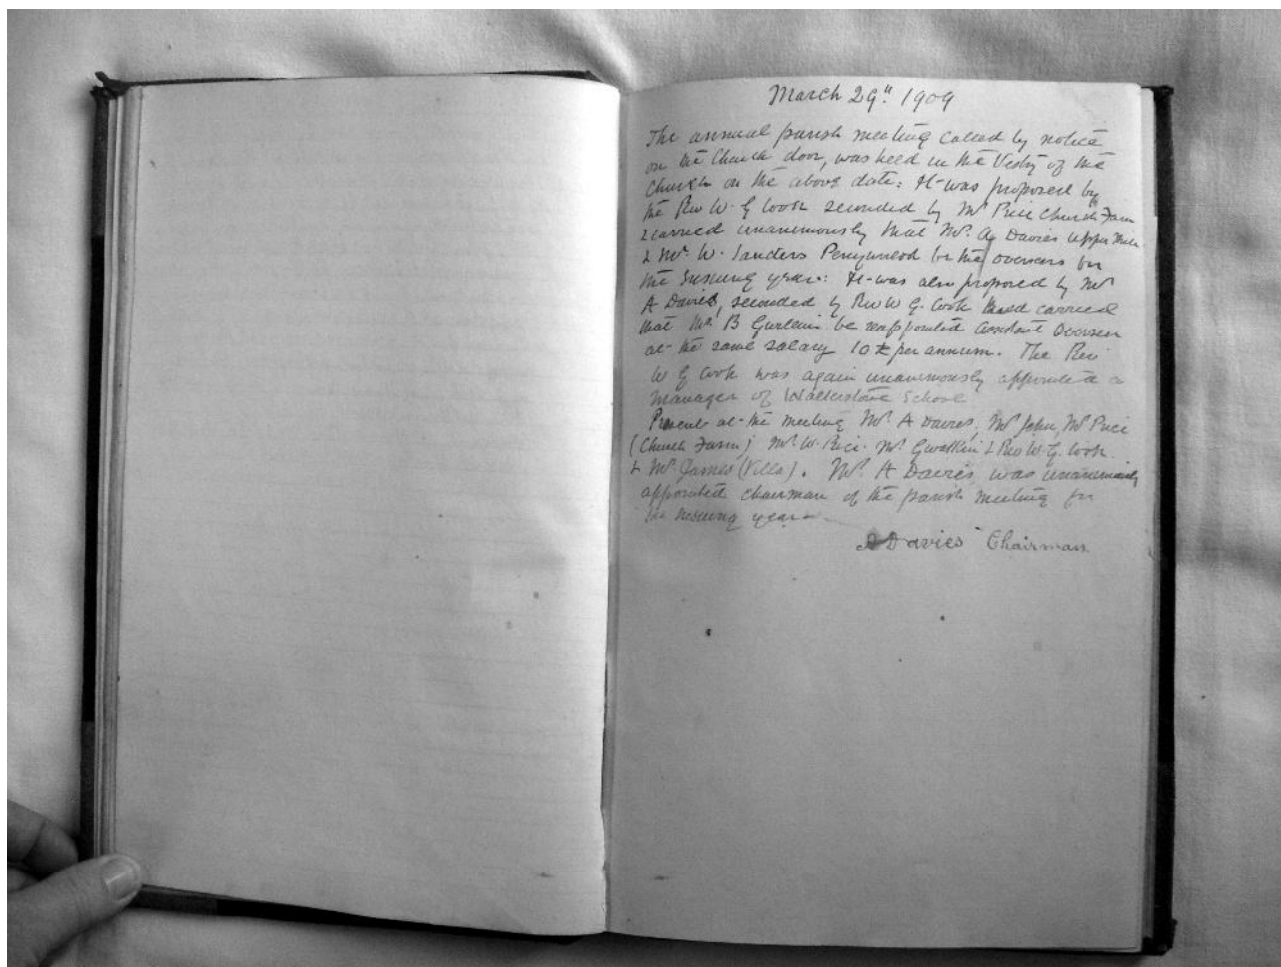 March 29" 1909
The annual parish meeting called by notice
on the Church door, was held in the Vestry of the
Church on the above date: It was proposed by
the Rev W. G Cook seconded by Mr Price Church Farm
& carried unanimously that Mr. A Davies Upper
& Mr. W. Sanders be the overseers for
the ensuing year: It was also proposed by Mr
A Davies, seconded by Rev W G. Cook and carried
that Mr B be reappointed assistant Overseer
at the same salary 10£ per annum. The Rev
W G Cook was again unanimously appointed a
manager of Walterstone School
Present at the meeting Mr A Davies, Mr John, Mr Price
(Church Farm) Mr. W. Price. Mr. Gwatkin & Rev W. G. Cook
& Mr. James (Villa). Mr. A Davies was unanimously
appointed chairman of the parish meeting for
the ensuing year
A Davies Chairman